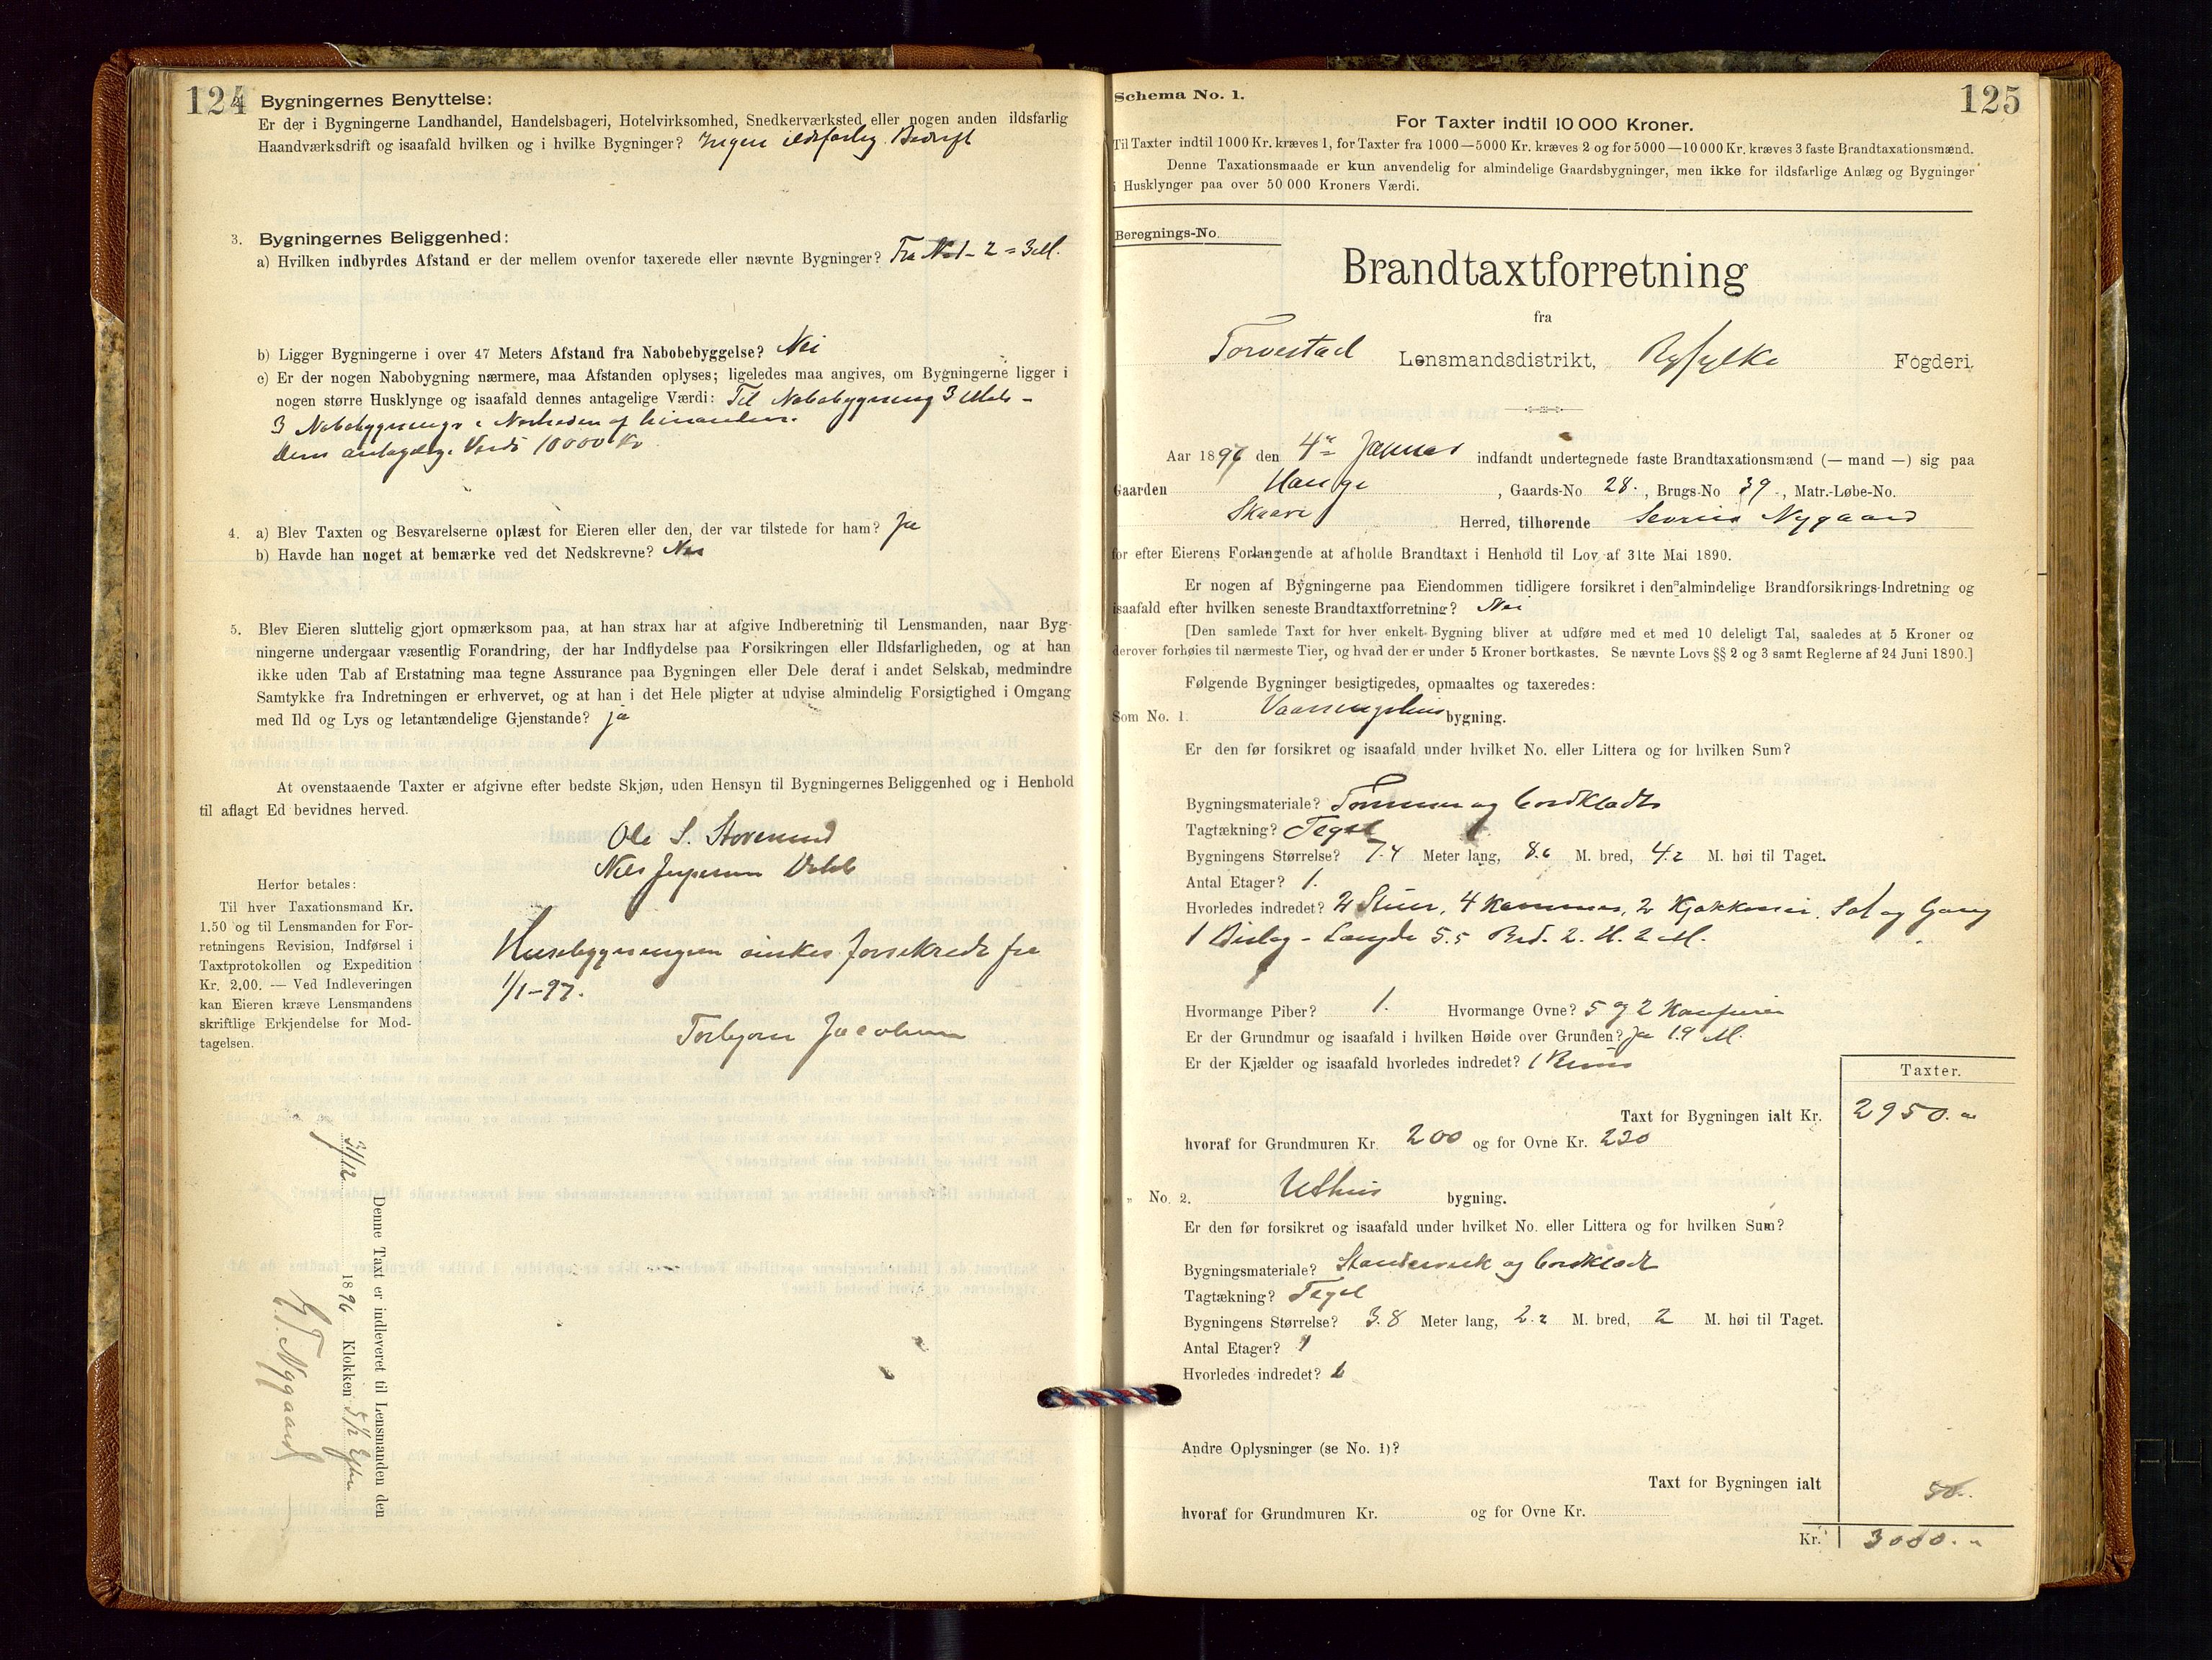 124
Bygningernes Benyttelse:
Er der i Bygningerne Landhandel, Handelsbageri, Hotelvirksomhed, Snedkerværksted eller nogen anden ildsfarlig
Haandværksdrift og isaafald hvilken og i hvilke Bygninger? Ingen ildsfarlig Bedrift
3. Bygningernes Beliggenhed:
a) Hvilken indbyrdes Afstand er der mellem ovenfor taxerede eller nævnte Bygninger? Fra No 1 - 2 = 3 M.
b) Ligger Bygningerne i over 47 Meters Afstand fra Nabobebyggelse? Nei
c) Er der nogen Nabobygning nærmere, maa Afstanden oplyses; ligeledes maa angives, om Bygningerne ligger i
nogen større Husklynge og isaafald dennes antagelige Værdi: Til Nabobygning 3 Met -
3 Nabobygninger i Nærheden af hinanden.
Dens antagelige Værdi 10000 Kr
4. a) Blev Taxten og Besvarelserne oplæst for Eieren eller den, der var tilstede for ham? Ja
b) Havde han noget at bemærke ved det Nedskrevne? Nei
5. Blev Eieren sluttelig gjort opmærksom paa, at han strax har at afgive Indberetning til Lensmanden, naar Byg-
ningerne undergaar væsentlig Forandring, der har Indflydelse paa Forsikringen eller Ildsfarligheden, og at han
ikke uden Tab af Erstatning maa tegne Assurance paa Bygningen eller Dele deraf i andet Selskab, medmindre
Samtykke fra Indretningen er erhvervet, og at han i det Hele pligter at udvise almindelig Forsigtighed i Omgang
med Ild og Lys og letantændelige Gjenstande? ja
At ovenstaaende Taxter er afgivne efter bedste Skjøn, uden Hensyn til Bygningernes Beliggenhed og i Henhold
til aflagt Ed bevidnes herved.
Ole S. Storesund
Nils Jespersen
Herfor betales:
Til hver Taxationsmand Kr.
1.50 og til Lensmanden for For-
retningens Revision, Indførsel i
Taxtprotokollen og Expedition
Kr. 2.00. — Ved Indleveringen
kan Eieren kræve Lensmandens
skriftlige Erkjendelse for Mod-
tagelsen.
Husebygningen ønskes forsikrede fra
1/1-97.
Torbjørn Jacobsen
Denne Taxt er indleveret til Lensmanden den
31/12 1896 Klokken 5 1/2 Efter
Nygaard
125
Schema No. 1.
For Taxter indtil 10 000 Kroner.
Til Taxter indtil 1000 Kr. kræves 1, for Taxter fra 1000—5000 Kr. kræves 2 og for 5000—10 000 Kr. kræves 3 faste Brandtaxationsmænd.
Denne Taxationsmaade er kun anvendelig for almindelige Gaardsbygninger, men ikke for ildsfarlige Anlæg og Bygninger
i Husklynger paa over 50 000 Kroners Værdi.
Beregnings-No.
Brandtaxtforretning
fra
Torvestad Lensmandsdistrikt, Ryfylke Fogderi.
Aar 1897 den 4de Januar indfandt undertegnede faste Brandtaxationsmænd (— mand —) sig paa
Gaarden Hauge, Gaards-No 28., Brugs-No 39., Matr.-Løbe-No.
Skaare Herred, tilhørende Nygaard
for efter Eierens Forlangende at afholde Brandtaxt i Henhold til Lov af 31te Mai 1890.
Er nogen af Bygningerne paa Eiendommen tidligere forsikret i den almindelige Brandforsikrings-Indretning og
isaafald efter hvilken seneste Brandtaxtforretning? Nei
[Den samlede Taxt for hver enkelt Bygning bliver at udføre med et med 10 deleligt Tal, saaledes at 5 Kroner og
derover forhøies til nærmeste Tier, og hvad der er under 5 Kroner bortkastes. Se nævnte Lovs §§ 2 og 3 samt Reglerne af 24 Juni 1890.]
Følgende Bygninger besigtigedes, opmaaltes og taxeredes:
Som No. 1. Vaaningshus bygning.
Er den før forsikret og isaafald under hvilket No. eller Littera og for hvilken Sum?
Bygningsmateriale? Tømmer og bordklædt
Tagtækning? Tegel
Bygningens Størrelse? 7.4 Meter lang, 8.6 M. bred, 4.2 M. høi til Taget.
Antal Etager? 1.
Hvorledes indredet? 2 Stuer, 4 Kammer, 2 Kjøkkener, Sal og Gang
1 Bislag - Længde 5.5 Bred. 2. H. 2 M.
Hvormange Piber? 1. Hvormange Ovne? 5 og 2 Komfurer
Er der Grundmur og isaafald i hvilken Høide over Grunden? Ja 1.9 M.
Er der Kjælder og isaafald hvorledes indredet? 1 Rum
Taxter.
Taxt for Bygningen ialt Kr. 2950.
hvoraf for Grundmuren Kr. 200 og for Ovne Kr. 230
" No. 2. Uthus bygning.
Er den før forsikret og isaafald under hvilket No. eller Littera og for hvilken Sum?
Bygningsmateriale? Standerværk og bordklædt
Tagtækning? Tegel
Bygningens Størrelse? 3.8 Meter lang, 2.2 M. bred, 2 M. høi til Taget.
Antal Etager? 1
Hvorledes indredet?
Andre Oplysninger (se No. 1)?
Taxt for Bygningen ialt 50.
hvoraf for Grundmuren Kr. og for Ovne Kr.
Kr. 3000.